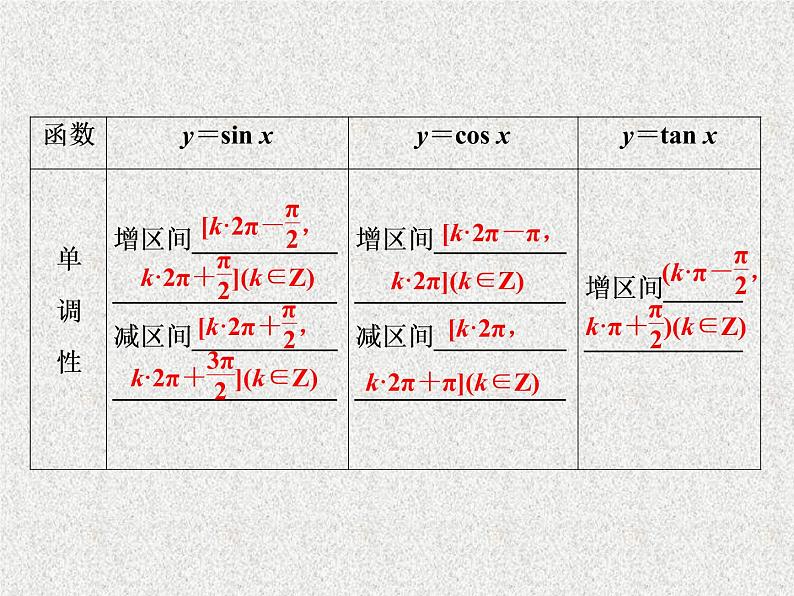 函数 y＝sin x y＝cos x y＝tan x
单调性
增区间[k·2π－π/2，
k·2π＋π/2](k∈Z)
减区间[k·2π＋π/2，
k·2π＋3π/2](k∈Z)
增区间[k·2π－π，
k·2π](k∈Z)
减区间[k·2π，
k·2π＋π](k∈Z)
增区间(k·π－π/2，
k·π＋π/2)(k∈Z)